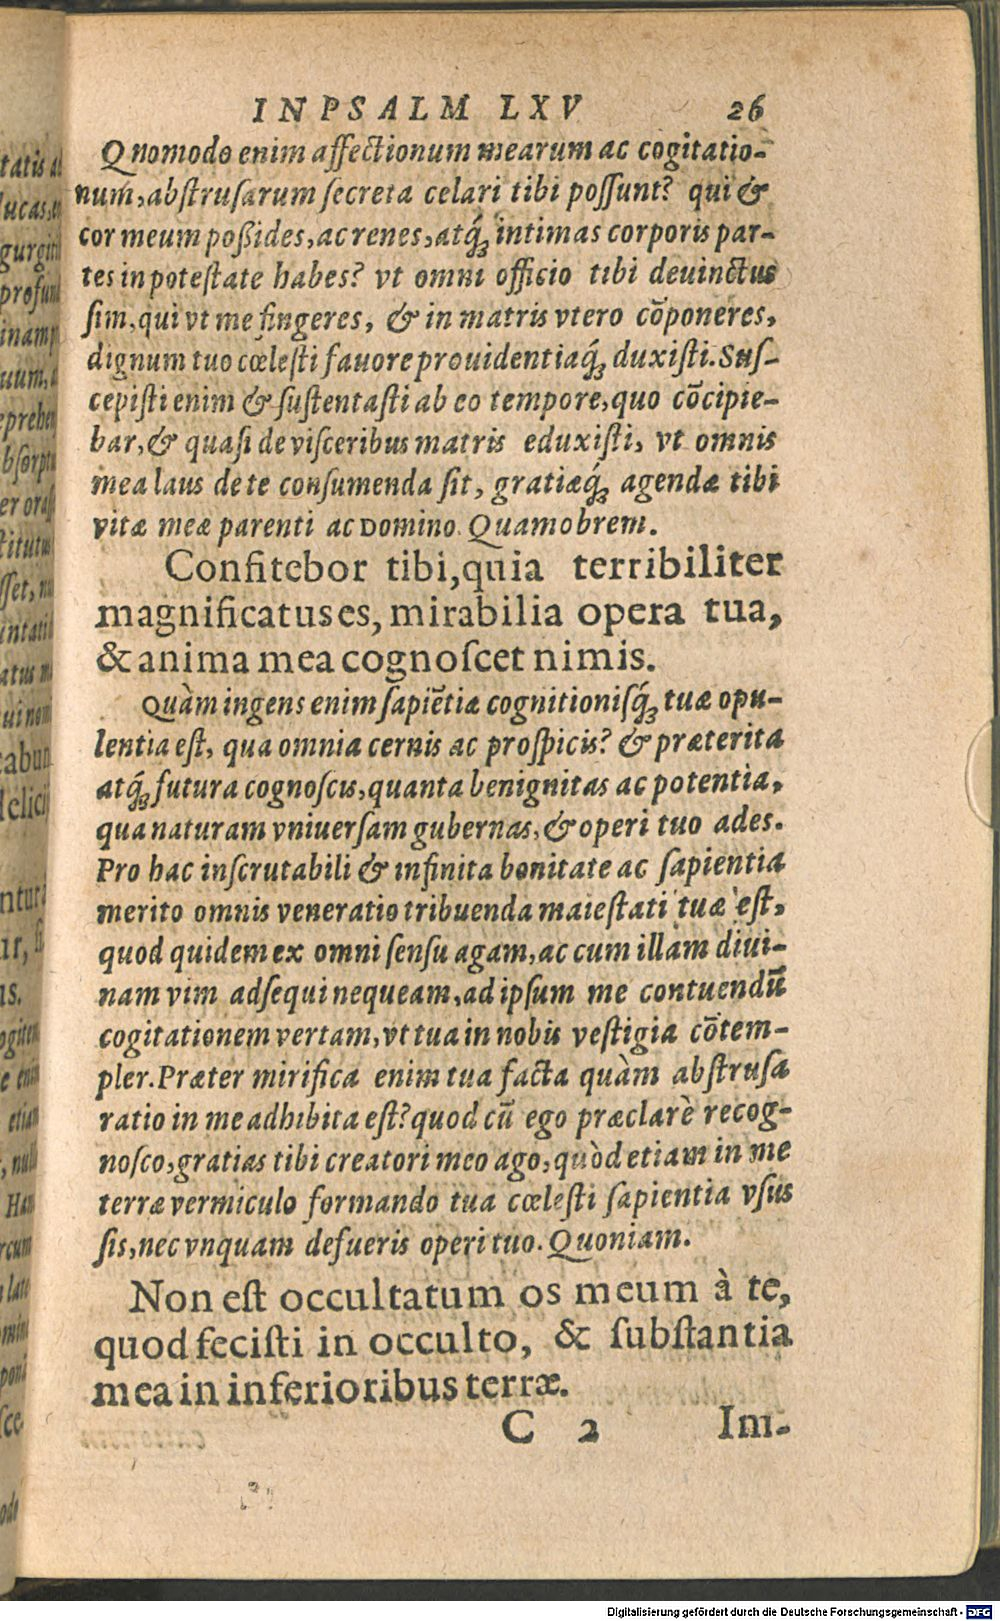 IN PSALM LXV 26
Qnomodo enim affectionum mearum ac cogitatio-
num, abſtruſarum ſecreta celari tibi poſſunt? qui &
cor meum poßides, ac renes, atq́ꝫ intimas corporis par-
tes in poteſtate habes? vt omni officio tibi deuinctus
ſim, qui vt me fingeres, & in matris vtero cōponeres,
dignum tuo cœleſti fauore prouidentiaq́ꝫ duxiſti. Suſ-
cepiſti enim & ſuſtentaſti ab eo tempore, quo cōcipie-
bar, & quaſi de viſceribus matris eduxiſti, vt omnis
mea laus de te conſumenda ſit, gratiæq́ꝫ agendæ tibi
vitæ meæ parenti ac DOMINO. Quamobrem.
Confitebor tibi, quia terribiliter
magnificatus es, mirabilia opera tua,
& anima mea cognoſcet nimis.
Quàm ingens enim ſapiētiæ cognitioniſq́ꝫ tuæ opu-
lentia eſt, qua omnia cernis ac proſpicis? & præterita
atq́ꝫ futura cognoſcis, quanta benignitas ac potentia,
qua naturam vniuerſam gubernas, & operi tuo ades.
Pro hac inſcrutabili & infinita bonitate ac ſapientia
merito omnis veneratio tribuenda maieſtati tuæ eſt,
quod quidem ex omni ſenſu agam, ac cum illam diui-
nam vim adſequi nequeam, ad ipſum me contuendū
cogitationem vertam, vt tua in nobis veſtigia cōtem-
pler. Præter mirifica enim tua facta quàm abſtruſa
ratio in me adhibita eſt? quod cū ego præclarè recog-
noſco, gratias tibi creatori meo ago, quòd etiam in me
terræ vermiculo formando tua cœleſti ſapientia vſus
ſis, nec vnquam defueris operi tuo. Quoniam.
Non eſt occultatum os meum à te,
quod feciſti in occulto, & ſubſtantia
mea in inferioribus terræ.
C 2 Im-
Digitalisierung gefördert durch die Deutsche Forschungsgemeinschaft - DFG